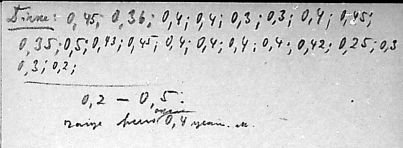 0,45; 0,36; 0,4; 0,4; 0,3; 0,3; 0,4; 0,45;
0,35; 0,5; 0,43; 0,45; 0,4; 0,4; 0,4; 0,4; 0,42; 0,25; 0,3
0,3; 0,2;
0,2 – 0,5:
0,4